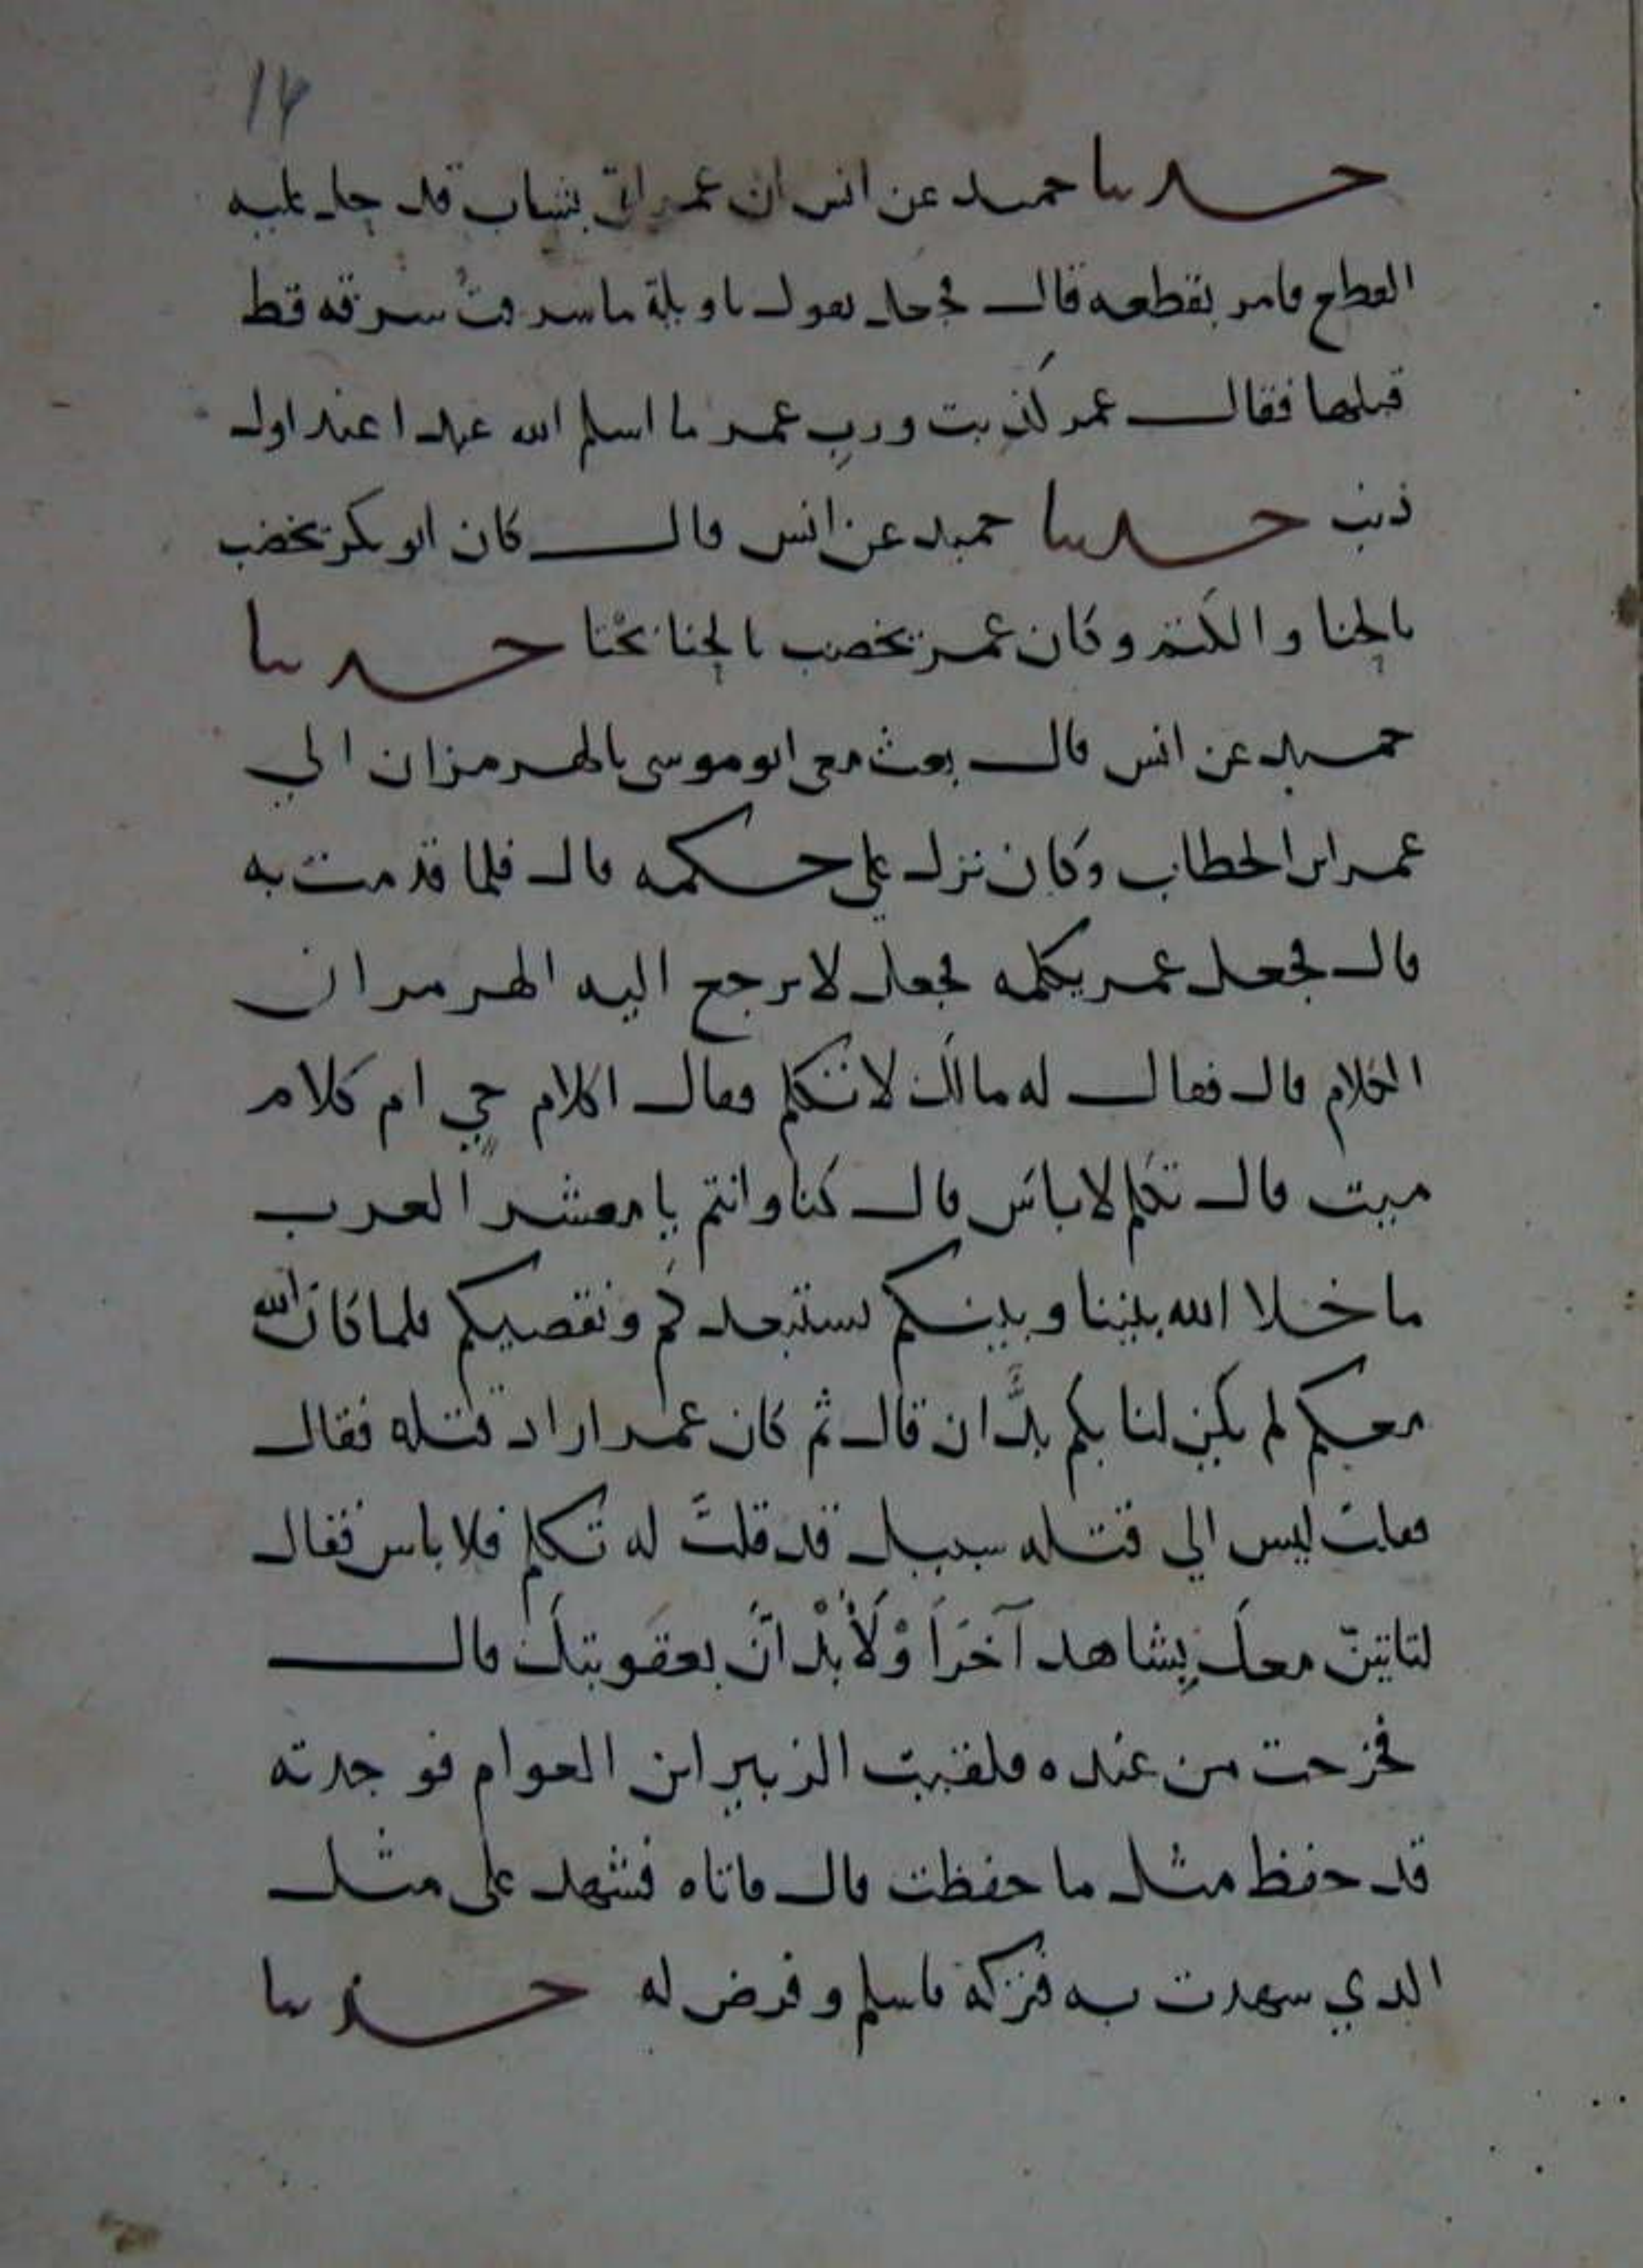 ١٤
حدثنا حميد عن انس ان عمر اتي بشاب قد حل عليه
القطع فامر بقطعه قال فجعل يقول ياويلة ما سرقت سرقه قط
قبلها فقال عمر كذبت ورب عمر ما اسلم الله عبدا عند اول
ذنب حدثنا حميد عن انس قال كان ابو بكر يخضب
بالحنا والكتم وكان عمر يخضب بالحنا بحتا حدثنا
حميد عن انس قال بعث معي ابو موسى بالهرمزان الي
عمر ابن الخطاب وكان نزل علي حكمه قال فلما قدمت به
قال فجعل عمر يكلمه فجعل لا يرجع اليه الهرمزان
الكلام قال فقال له مالك لا تتكلم فقال اكلام حي ام كلام
ميت قال تكلم لا باس قال كنا وانتم يا معشر العرب
ما خلا الله بيننا وبينكم نستبعدكم ونقصيكم فلما كان الله
معكم لم يكن لنا بكم يدان قال ثم كان عمر اراد قتله فقال
فقلت ليس الي قتله سبيل قد قلت له تكلم فلا باس فقال
لتاتينّ معك بشاهد آخرا ولأبدانّ بعقوبتك قال
فخرجت من عنده فلقيت الزبير ابن العوام فوجدته
قد حفظ مثل ما حفظت قال فاتاه فشهد على مثل
الذي شهدت به فتركه فاسلم وفرض له حدثنا